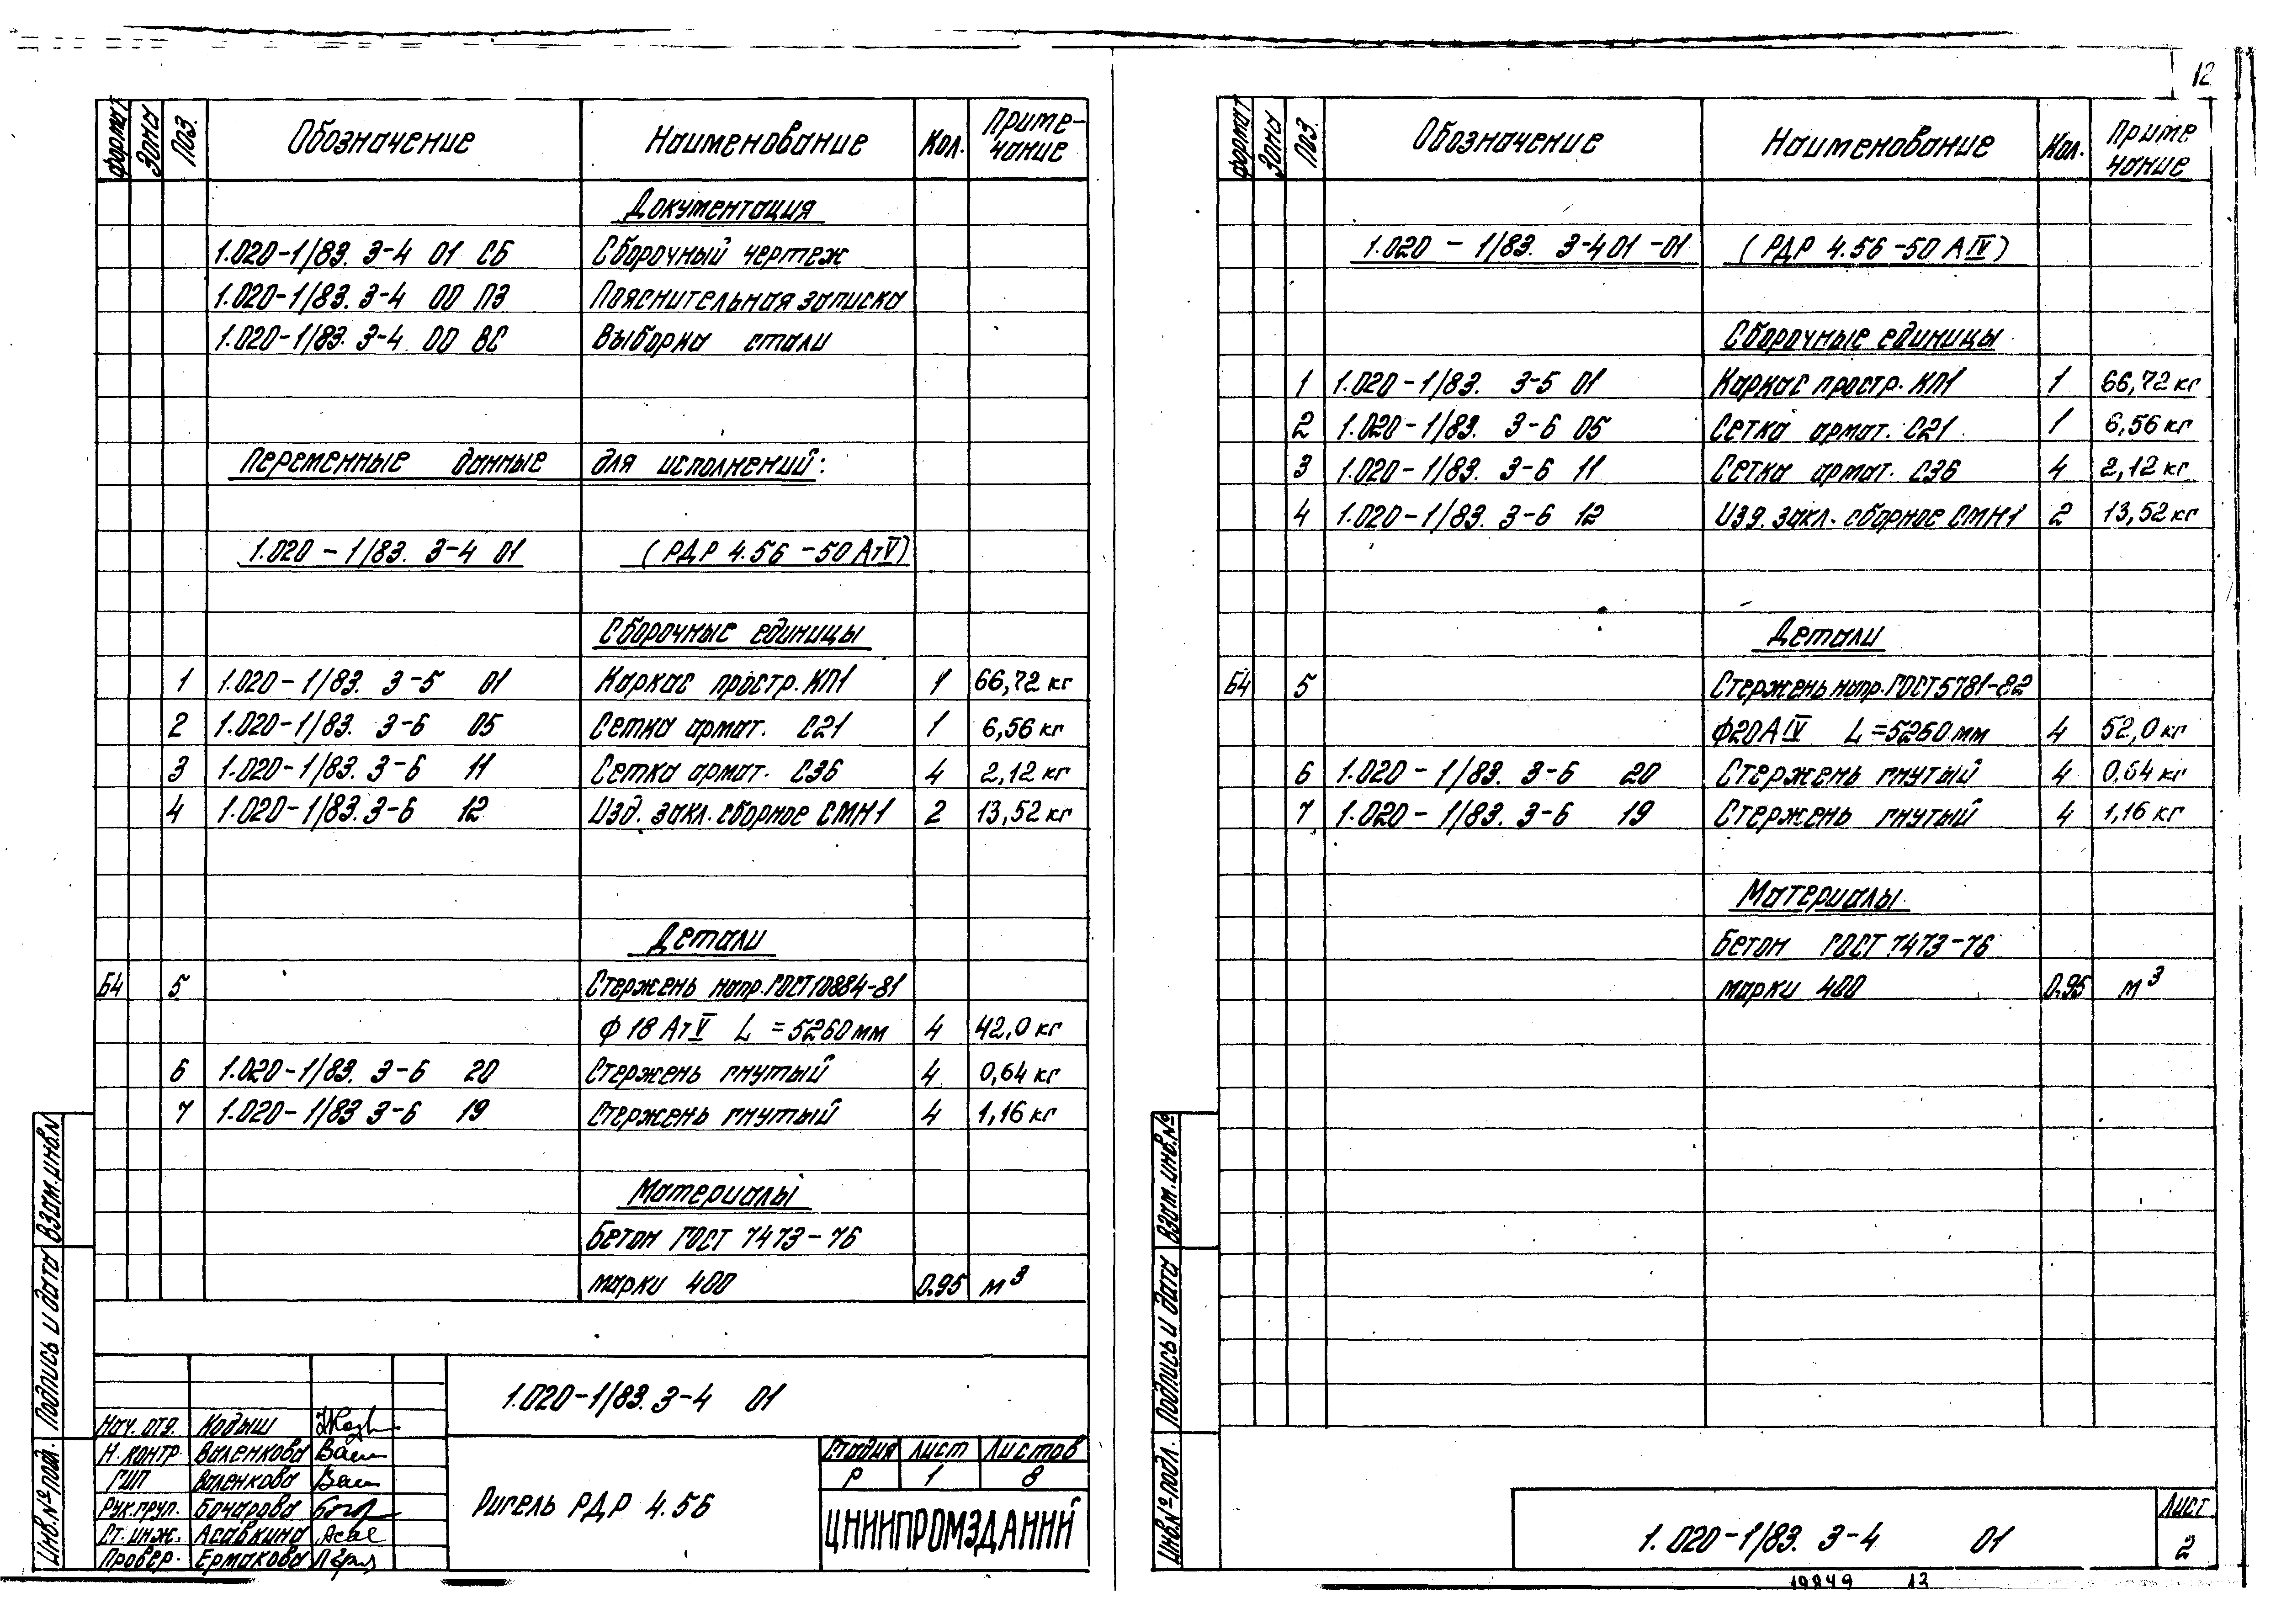 12
формат Зона Поз. Обозначение Наименование Кол. Приме-чание
Документация
1.020-1/83. 3-4 01 СБ Сборочный чертеж
1.020-1/83. 3-4 00 ПЗ Пояснительная записка
1.020-1/83. 3-4 00 ВС Выборка стали
Переменные данные для исполнений:
1.020-1/83. 3-4 01 (РДР 4.56-50 АтV)
Сборочные единицы
1 1.020-1/83. 3-5 01 Каркас простр. КП1 1 66,72 кг
2 1.020-1/83. 3-6 05 Сетка армат. С21 1 6,56 кг
3 1.020-1/83. 3-6 11 Сетка армат. С36 4 2,12 кг
4 1.020-1/83. 3-6 12 Изд. закл. сборное СМН1 2 13,52 кг
Детали
Б4 5 Стержень напр. ГОСТ 10884-81
Ф 18 АтV L=5260 мм 4 42,0 кг
6 1.020-1/83. 3-6 20 Стержень гнутый 4 0,64 кг
7 1.020-1/83 3-6 19 Стержень гнутый 4 1,16 кг
Материалы
Бетон ГОСТ 7473-76
марки 400 0.95 м³
1.020-1/83. 3-4 01
Нач. отд. Кодыш
Н. контр. Валенкова
ГИП Валенкова
Рук. груп. Бочарова
Ст. инж. Асавкина
Провер. Ермакова
Ригель РДР 4.56
Стадия Лист Листов
Р 1 8
ЦНИИПРОМЗДАНИЙ
Инв. № подл. Подпись и дата Взам. инв. N
формат Зона Поз. Обозначение Наименование Кол. Приме чание
1.020-1/83. 3-4 01-01 (РДР 4.56-50 АIV)
Сборочные единицы
1 1.020-1/83. 3-5 01 Каркас простр. КП1 1 66,72 кг
2 1.020-1/83. 3-6 05 Сетка армат. С21 1 6,56 кг
3 1.020-1/83. 3-6 11 Сетка армат. С36 4 2,12 кг
4 1.020-1/83. 3-6 12 Изд. закл. сборное СМН1 2 13,52 кг
Детали
Б4 5 Стержень напр. ГОСТ 5781-82
Ф20 АIV L=5260 мм 4 52,0 кг
6 1.020-1/83. 3-6 20 Стержень гнутый 4 0.64 кг
7 1.020-1/83. 3-6 19 Стержень гнутый 4 1,16 кг
Материалы
Бетон ГОСТ 7473-76
марки 400 0.95 м³
Инв. № подл. Подпись и дата Взам. инв. №
1.020-1/83. 3-4 01
Лист
2
19849 13